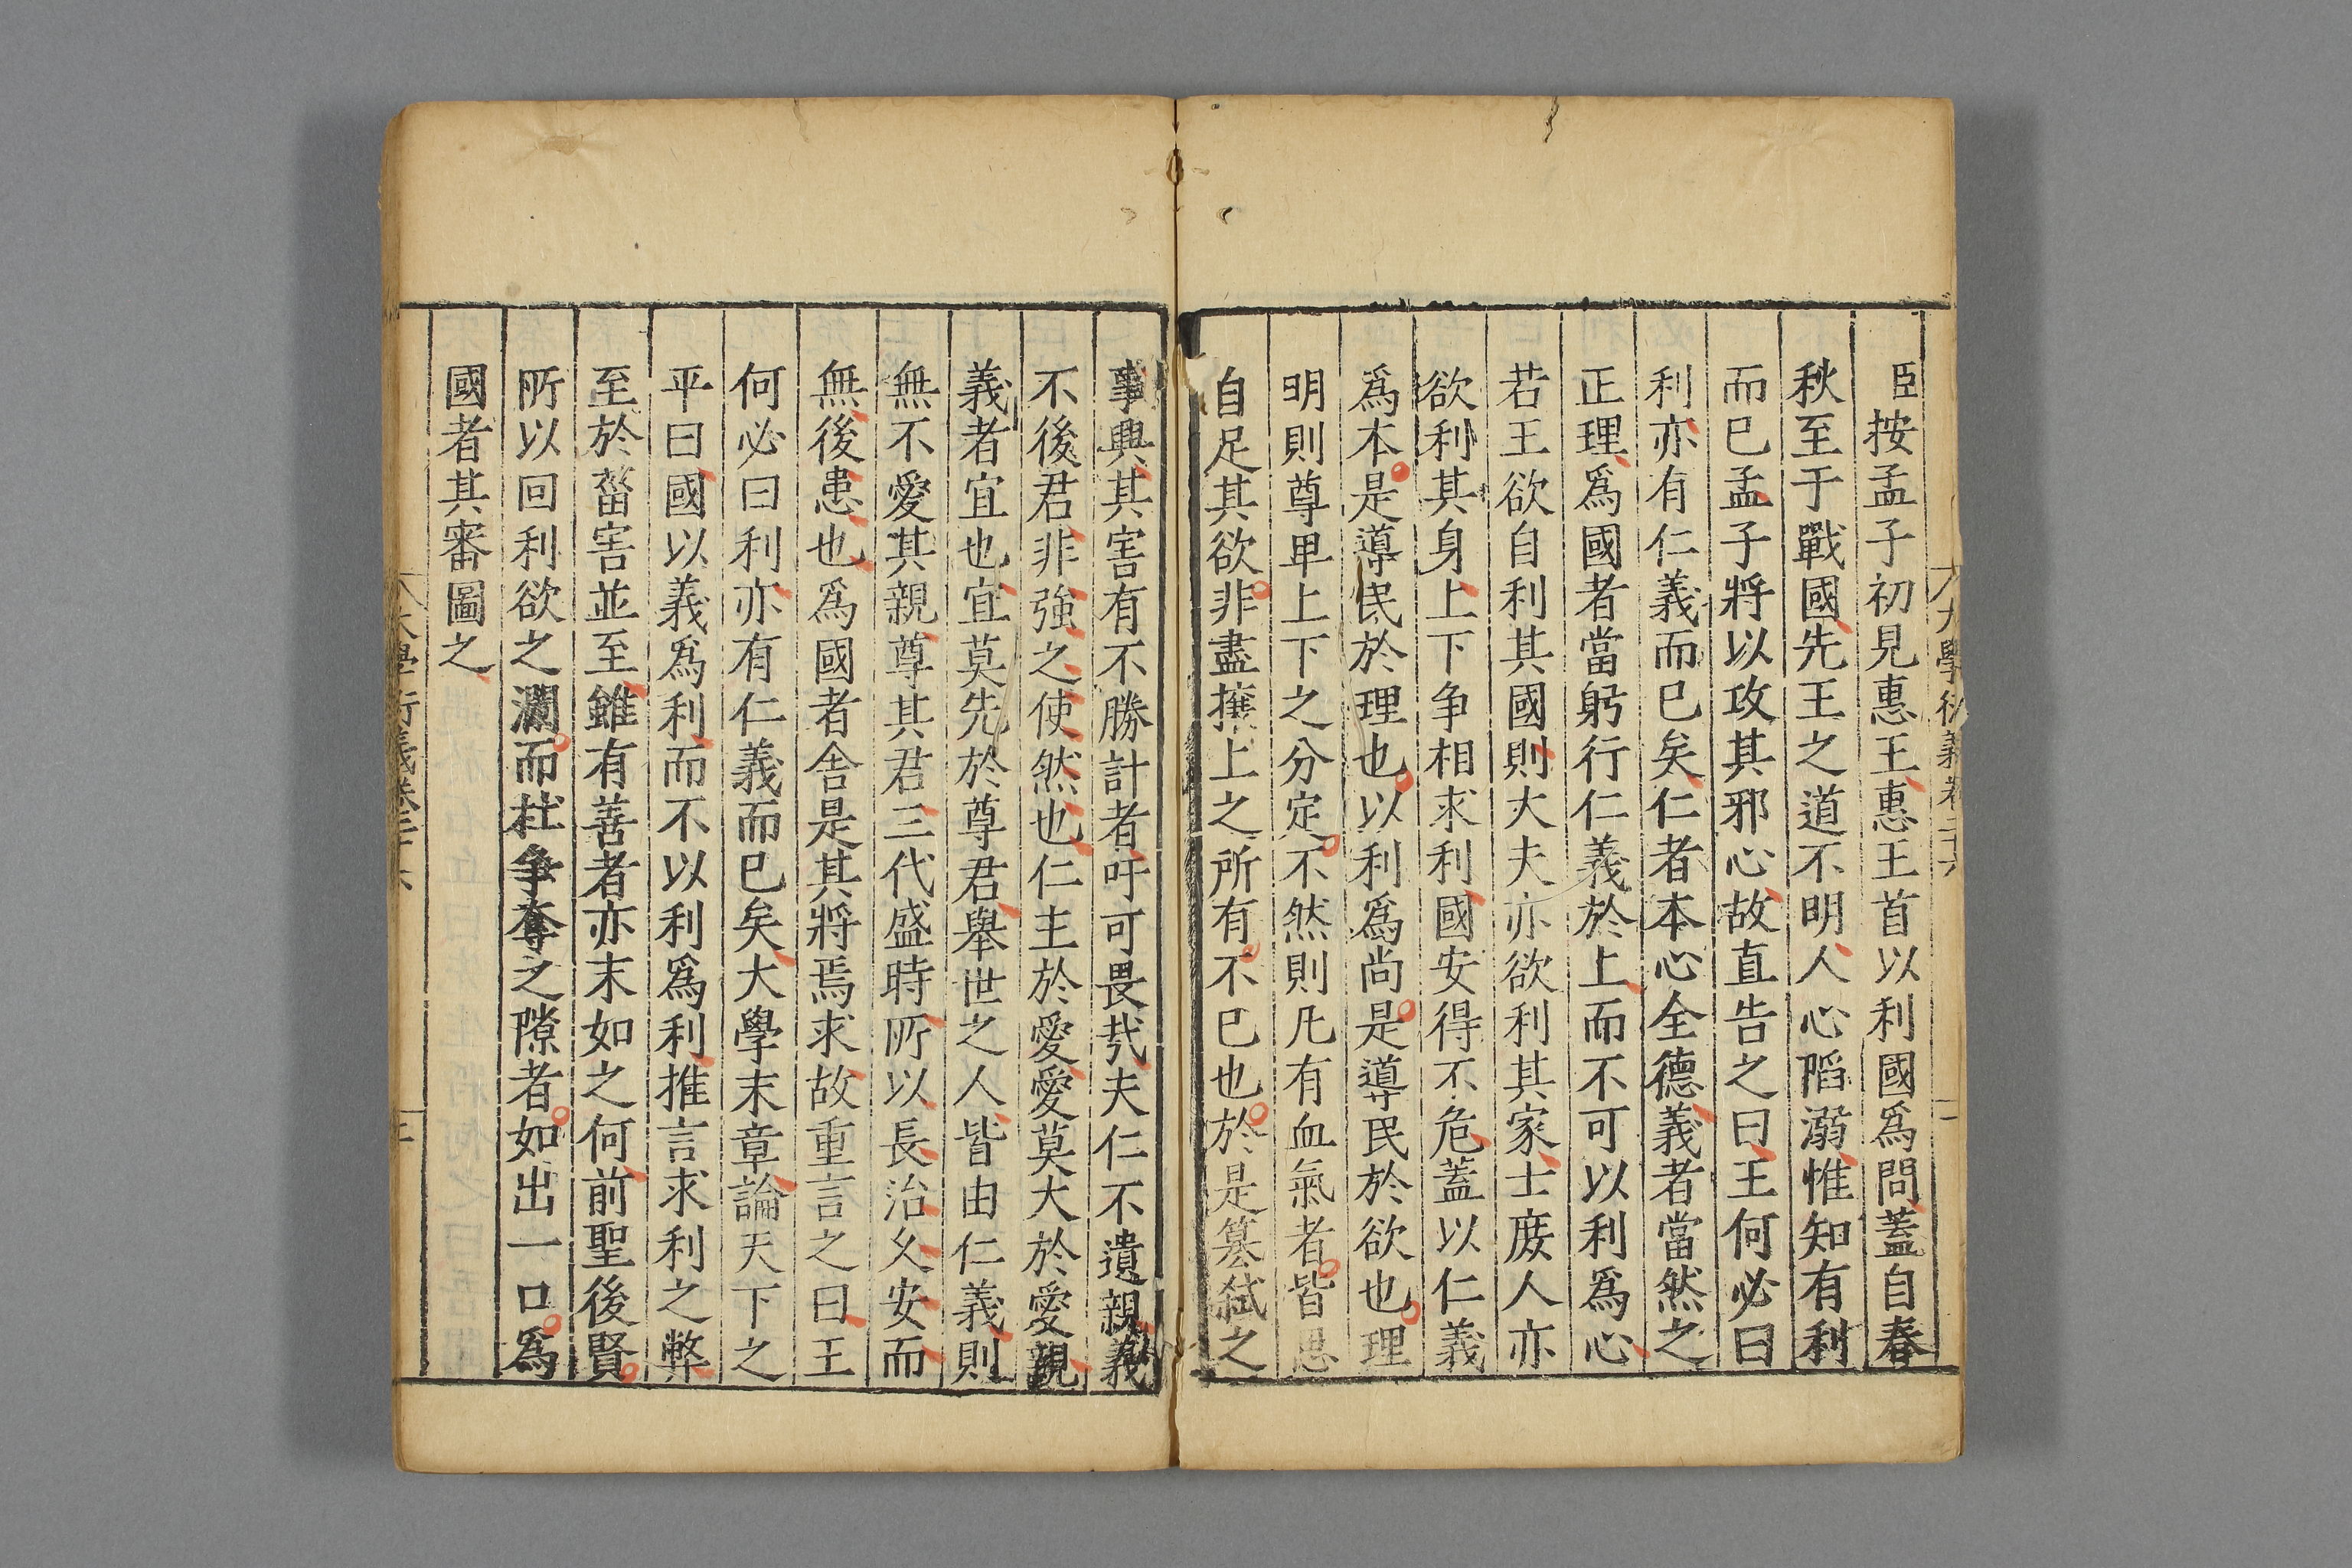 臣按孟子初見惠王惠王首以利國爲問蓋自春
秋至于戰國先王之道不明人心陷溺惟知有利
而已孟子將以攻其邪心故直告之曰王何必曰
利亦有仁義而已矣仁者本心全德義者當然之
正理爲國者當躬行仁義於上而不可以利爲心
若王欲自利其國則大夫亦欲利其家士庶人亦
欲利其身上下争相求利國安得不危蓋以仁義
爲本是導民於理也以利爲尚是導民於欲也理
明則尊卑上下之分定不然則凡有血氣者皆思
自足其欲非盡攘上之所有不已也於是篡弑之
事興其害有不勝計者吁可畏哉夫仁不遺親義
不後君非強之使然也仁主於愛愛莫大於愛親
義者宜也宜莫先於尊君舉世之人皆由仁義則
無不愛其親尊其君三代盛時所以長治久安而
無後患也爲國者舍是其將焉求故重言之曰王
何必曰利亦有仁義而已矣大學末章論天下之
平曰國以義爲利而不以利爲利推言求利之弊
至於菑害並至雖有善者亦末如之何前聖後賢
所以回利欲之瀾而杜争奪之隙者如出一口爲
國者其審圖之
大學衍義卷二十六